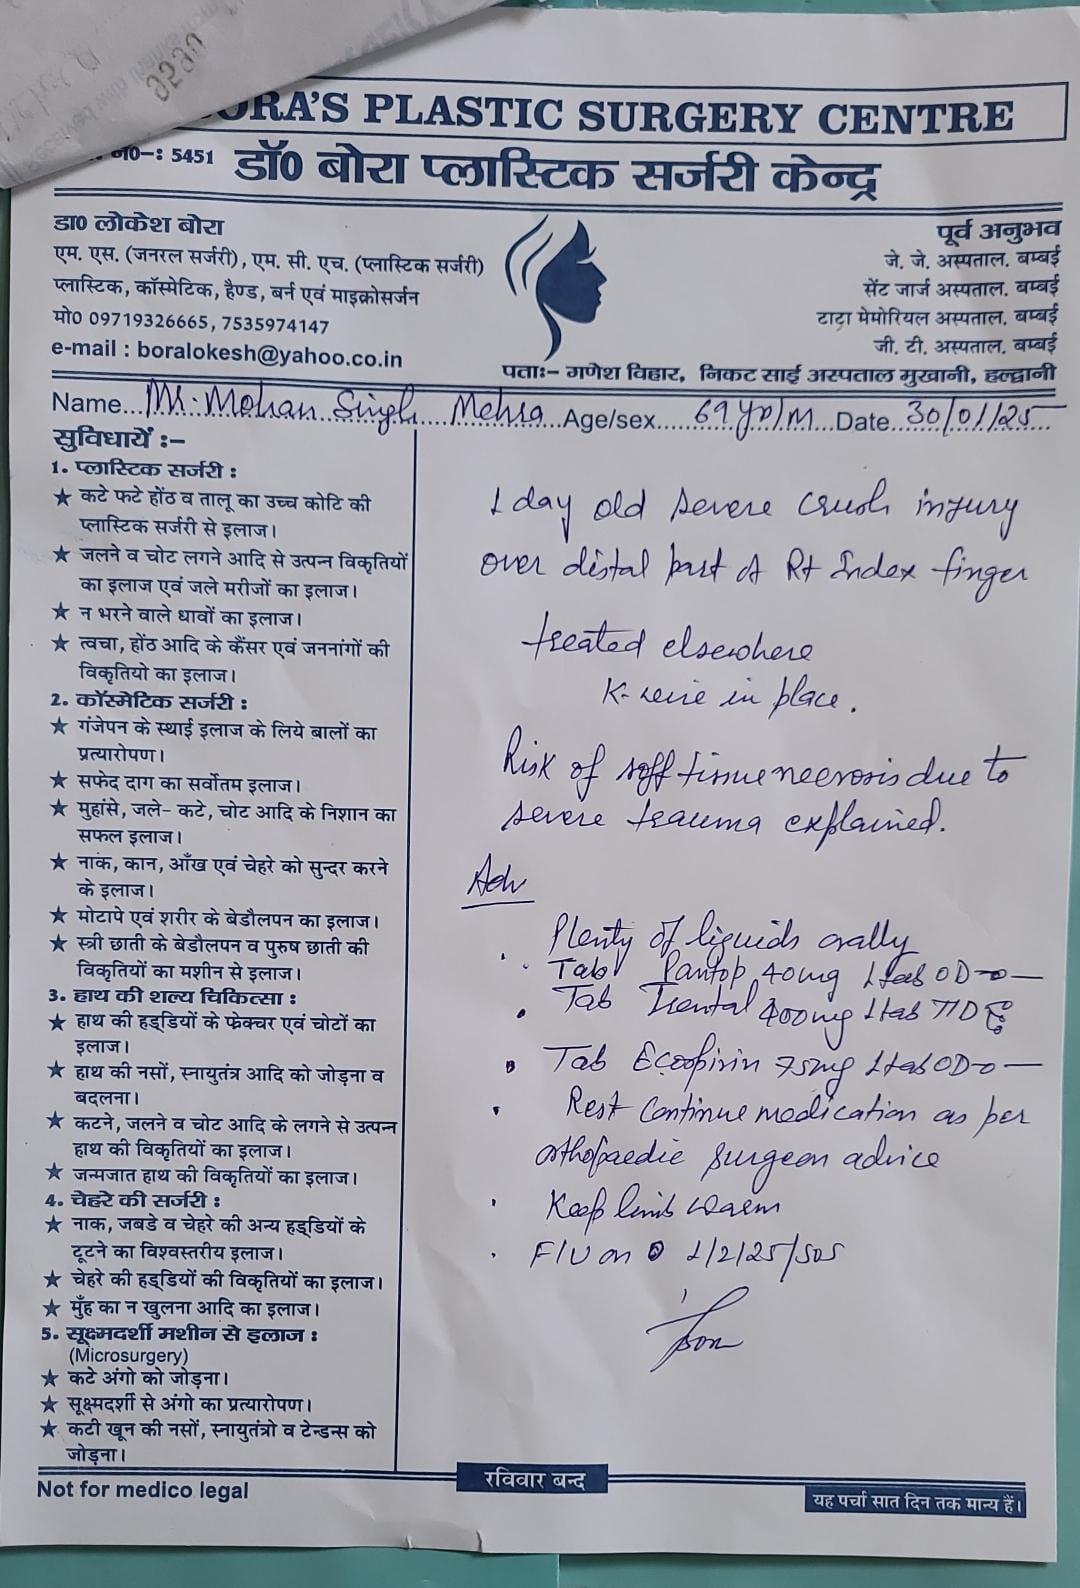 3230
ORA'S PLASTIC SURGERY CENTRE
न0-: 5451
डॉ0 बोरा प्लास्टिक सर्जरी केन्द्र
डा0 लोकेश बोरा
एम. एस. (जनरल सर्जरी), एम. सी. एच. (प्लास्टिक सर्जरी)
प्लास्टिक, कॉस्मेटिक, हैण्ड, बर्न एवं माइक्रोसर्जन
मो0 09719326665, 7535974147
e-mail : boralokesh@yahoo.co.in
पूर्व अनुभव
जे. जे. अस्पताल, बम्बई
सेंट जार्ज अस्पताल, बम्बई
टाटा मेमोरियल अस्पताल, बम्बई
जी. टी. अस्पताल, बम्बई
पता:- गणेश विहार, निकट साई अस्पताल मुखानी, हल्द्वानी
Name...Mr. Mohan Singh Mehra...Age/sex.....69 yo/M...Date..30/01/25...
सुविधायें :-
1. प्लास्टिक सर्जरी :
★ कटे फटे होंठ व तालू का उच्च कोटि की
प्लास्टिक सर्जरी से इलाज।
★ जलने व चोट लगने आदि से उत्पन्न विकृतियों
का इलाज एवं जले मरीजों का इलाज।
★ न भरने वाले धावों का इलाज।
★ त्वचा, होंठ आदि के कैंसर एवं जननांगों की
विकृतियो का इलाज।
2. कॉस्मेटिक सर्जरी :
★ गंजेपन के स्थाई इलाज के लिये बालों का
प्रत्यारोपण।
★ सफेद दाग का सर्वोतम इलाज।
★ मुहांसे, जले- कटे, चोट आदि के निशान का
सफल इलाज।
★ नाक, कान, आँख एवं चेहरे को सुन्दर करने
के इलाज।
★ मोटापे एवं शरीर के बेडौलपन का इलाज।
★ स्त्री छाती के बेडौलपन व पुरुष छाती की
विकृतियों का मशीन से इलाज।
3. हाथ की शल्य चिकित्सा :
★ हाथ की हड्डियों के फेक्चर एवं चोटों का
इलाज।
★ हाथ की नसों, स्नायुतंत्र आदि को जोड़ना व
बदलना।
★ कटने, जलने व चोट आदि के लगने से उत्पन्न
हाथ की विकृतियों का इलाज।
★ जन्मजात हाथ की विकृतियों का इलाज।
4. चेहरे की सर्जरी :
★ नाक, जबडे व चेहरे की अन्य हड्डियों के
टूटने का विश्वस्तरीय इलाज।
★ चेहरे की हड्डियों की विकृतियों का इलाज।
★ मुँह का न खुलना आदि का इलाज।
5. सूक्ष्मदर्शी मशीन से इलाज :
(Microsurgery)
★ कटे अंगो को जोड़ना।
★ सूक्ष्मदर्शी से अंगो का प्रत्यारोपण।
★ कटी खून की नसों, स्नायुतंत्रो व टेन्डन्स को
जोड़ना।
1 day old severe crush injury
over distal part of Rt Index finger
treated elsewhere
K-wire in place.
Risk of soft tissue necrosis due to
severe trauma explained.
Adv
Plenty of liquids orally
. Tab Pantop 40mg 1 tab OD-0-
. Tab Trental 400mg 1 tab TID
. Tab Ecospirin 75mg 1 tab OD-0-
. Rest Continue medication as per
orthopaedic surgeon advice
. Keep limb warm
. F/U on 1/2/25/SOS
Not for medico legal
रविवार बन्द
यह पर्चा सात दिन तक मान्य हैं।